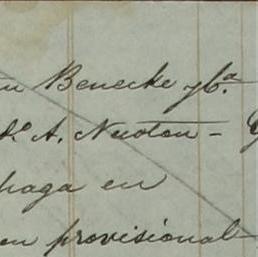 Benecke y Cª
A. Newton -
haga en
provisional